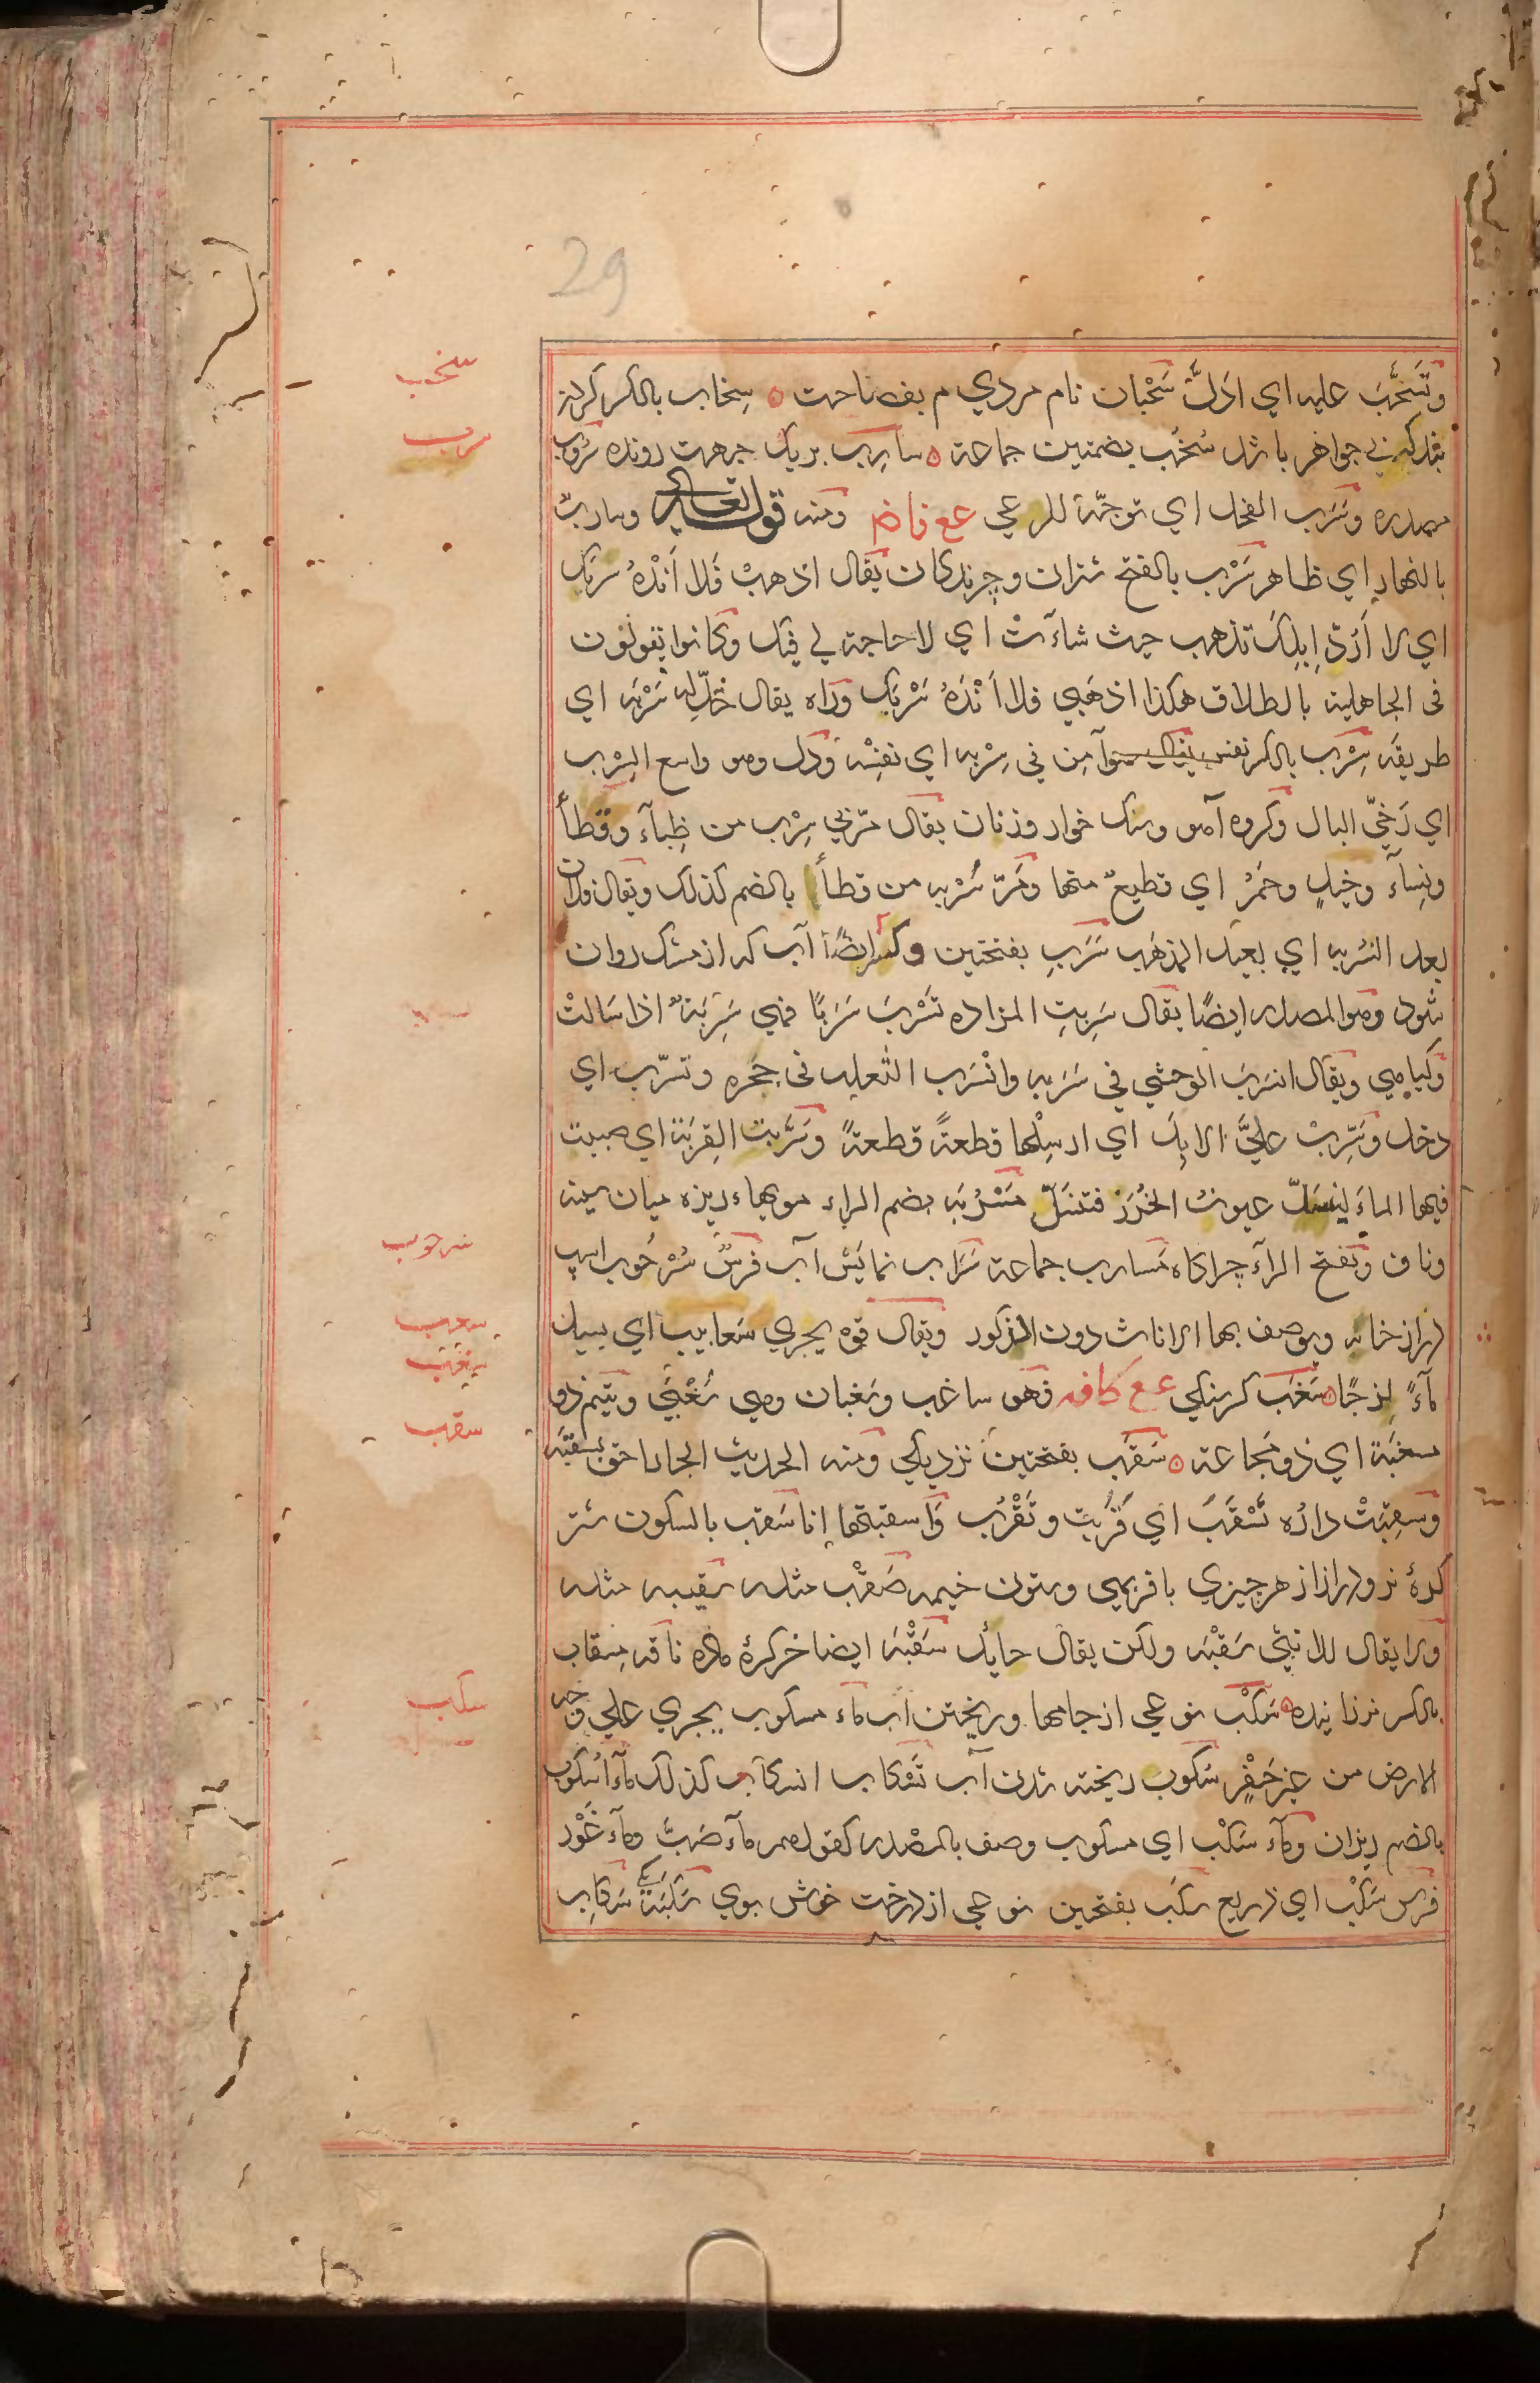 29
وتَسَحَّبَ عليه اي ادَلَّ سَحْبان نام مردي م بفصاحت ٥ سِخاب بالكسر كردن
بند كه بي جواهر باشد سُخُب بضمتين جماعة ٥ سارِب بريك جهت رونده سُروب
مصدره وسَرَب الفحل اي توجّه للرعي ع ع ف ا ض ومنه قوله تعالى وسارب
بالنهار اي ظاهر سَرْب بالفتح شتران وچرندكان يقال اذهبْ فلا اَنْدَهُ سربك
اي لا اَرُدّ اِبِلَك تذهب حيث شاءَتْ اي لا حاجة لي فيك وكانوا يقولون
فى الجاهلية بالطلاق هكذا اذهَبي فلا اَنْدَهُ سَرْبك وراه يقال خَلِّ له سَرْبَه اي
طريقَه سِرْب بالكسر نفس يقال هو آمِن في سِرْبه اي نفسِه ودل وهو واسع السِرْب
اي رَخيّ البال وكروه آهو وسنك خوار وزنان يقال مرّ بي سِرْب من ظِباء وقطأ
ونِساء وخيلٍ وحُمُر اي قطيعٌ منها ومَرّ سُرْبه من قطأ بالضم كذلك ويقال فلان
بعيد السُرْبه اي بعيد المذهب سَرَب بفتحتين وكسر ايضًا آب كه از مشك روان
شود وهو المصدر ايضًا يقال سَرِبتِ المزاده تَسْرَبَ سَرَبًا فهي سَرِبَةٌ اذا سَالتْ
ويقال انسَرَبَ الوحشي في سَرَبه وانْسَرب الثعلب فى جحره وتسرّب اي
دخل وسَرِّبْ عليَّ الابلَ اي ارسِلْها قطعةً قطعةً وسَرَّبتُ القِربَة اي صببت
فيها الماءَ عيونُ الخُرَز فتنسَدّ مَسْرُبَه بضم الراء مويهاء ريزه ميان سينه
وناف وبفتح الراء چراكاه مَسارِب جماعة سَراب نمايش آب فرسٌ سُرْحُوب اسپ
دراز خانه ويوصف بها الاناث دون الذكور ويقال فوه يجري سَعابيب اي يسيل
ماءً لزجًا ٥ سَغَب كرسنكي ع ع كافه فهو ساغب وسَغبان وهي سَغْبَى ويتيم ذو
مسغبَة اي ذو مَجاعة ٥ سَقَب بفتحتين نزديكي ومنه الحديث الجار احق بسقبَه
وسَقِبَتْ دارُه تَسْقَبَ اي قَرُبَت وتَقْرُب واَسقبتها انا سَقب بالسكون شتر
كرهٔ نر ودراز از هر چيزي با فربهي وستون خيمه صَقْب مثله سقيبه مثله
ولا يقال للانثى سَقْبَه ولكن يقال حايل سَقْبَه ايضا خر كرهٔ ماده ناقه مِسقاب
بالكسر نر زاينده ٥ سَكْب نوعي از جامها وريختن آب ماء مسكوب يجري علي وجه
الارض من غير حَفْر سُكوب ريخته شدن آب تَسْكاب انسكاب كذلك ماء اُسْكوب
بالضم ريزان وماء سَكْب اي مسكوب وصف بالمصدر كقولهم ماء صَبّ وماء غَوْر
فرس سَكْب اي ذريع سكَب بفتحتين نوعي از درخت خوش بوي سَكَبَة يكي سَكاب
سخب
سرب
سرحوب
سعب
سغب
سقب
سكب